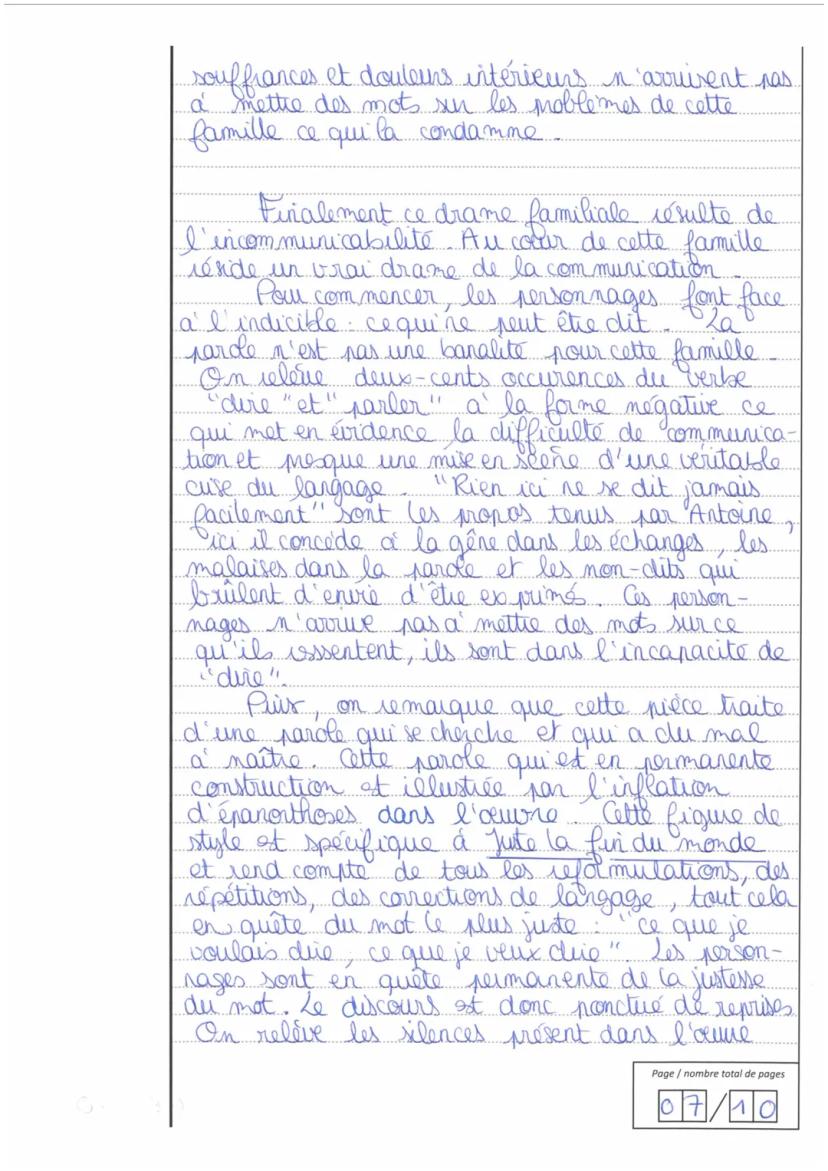 souffrances et douleurs intérieurs n'arrivent pas
à mettre des mots sur les problèmes de cette
famille ce qui la condamne.
Finalement ce drame familiale résulte de
l'incommunicabilité. Au cœur de cette famille
réside un vrai drame de la communication.
Pour commencer, les personnages font face
à l'indicible : ce qui ne peut être dit. La
parole n'est pas une banalité pour cette famille.
On relève deux-cents occurences du verbe
"dire" et "parler" à la forme négative ce
qui met en évidence la difficulté de communica-
tion et presque une mise en scène d'une véritable
crise du langage. "Rien ici ne se dit jamais
facilement" sont les propos tenus par Antoine,
ici il concède à la gêne dans les échanges, les
malaises dans la parole et les non-dits qui
brûlent d'envie d'être exprimés. Ces person-
nages n'arrive pas à mettre des mots sur ce
qu'ils ressentent, ils sont dans l'incapacité de
"dire".
Puis, on remarque que cette pièce traite
d'une parole qui se cherche et qui a du mal
à naître. Cette parole qui est en permanente
construction est illustrée par l'inflation
d'épanorthoses dans l'œuvre. Cette figure de
style est spécifique à Juste la fin du monde
et rend compte de tous les reformulations, des
répétitions, des corrections de langage, tout cela
en quête du mot le plus juste : "ce que je
voulais dire, ce que je veux dire". Les person-
nages sont en quête permanente de la justesse
du mot. Le discours est donc ponctué de reprises
On relève les silences présent dans l'œuvre
Page / nombre total de pages
07/10